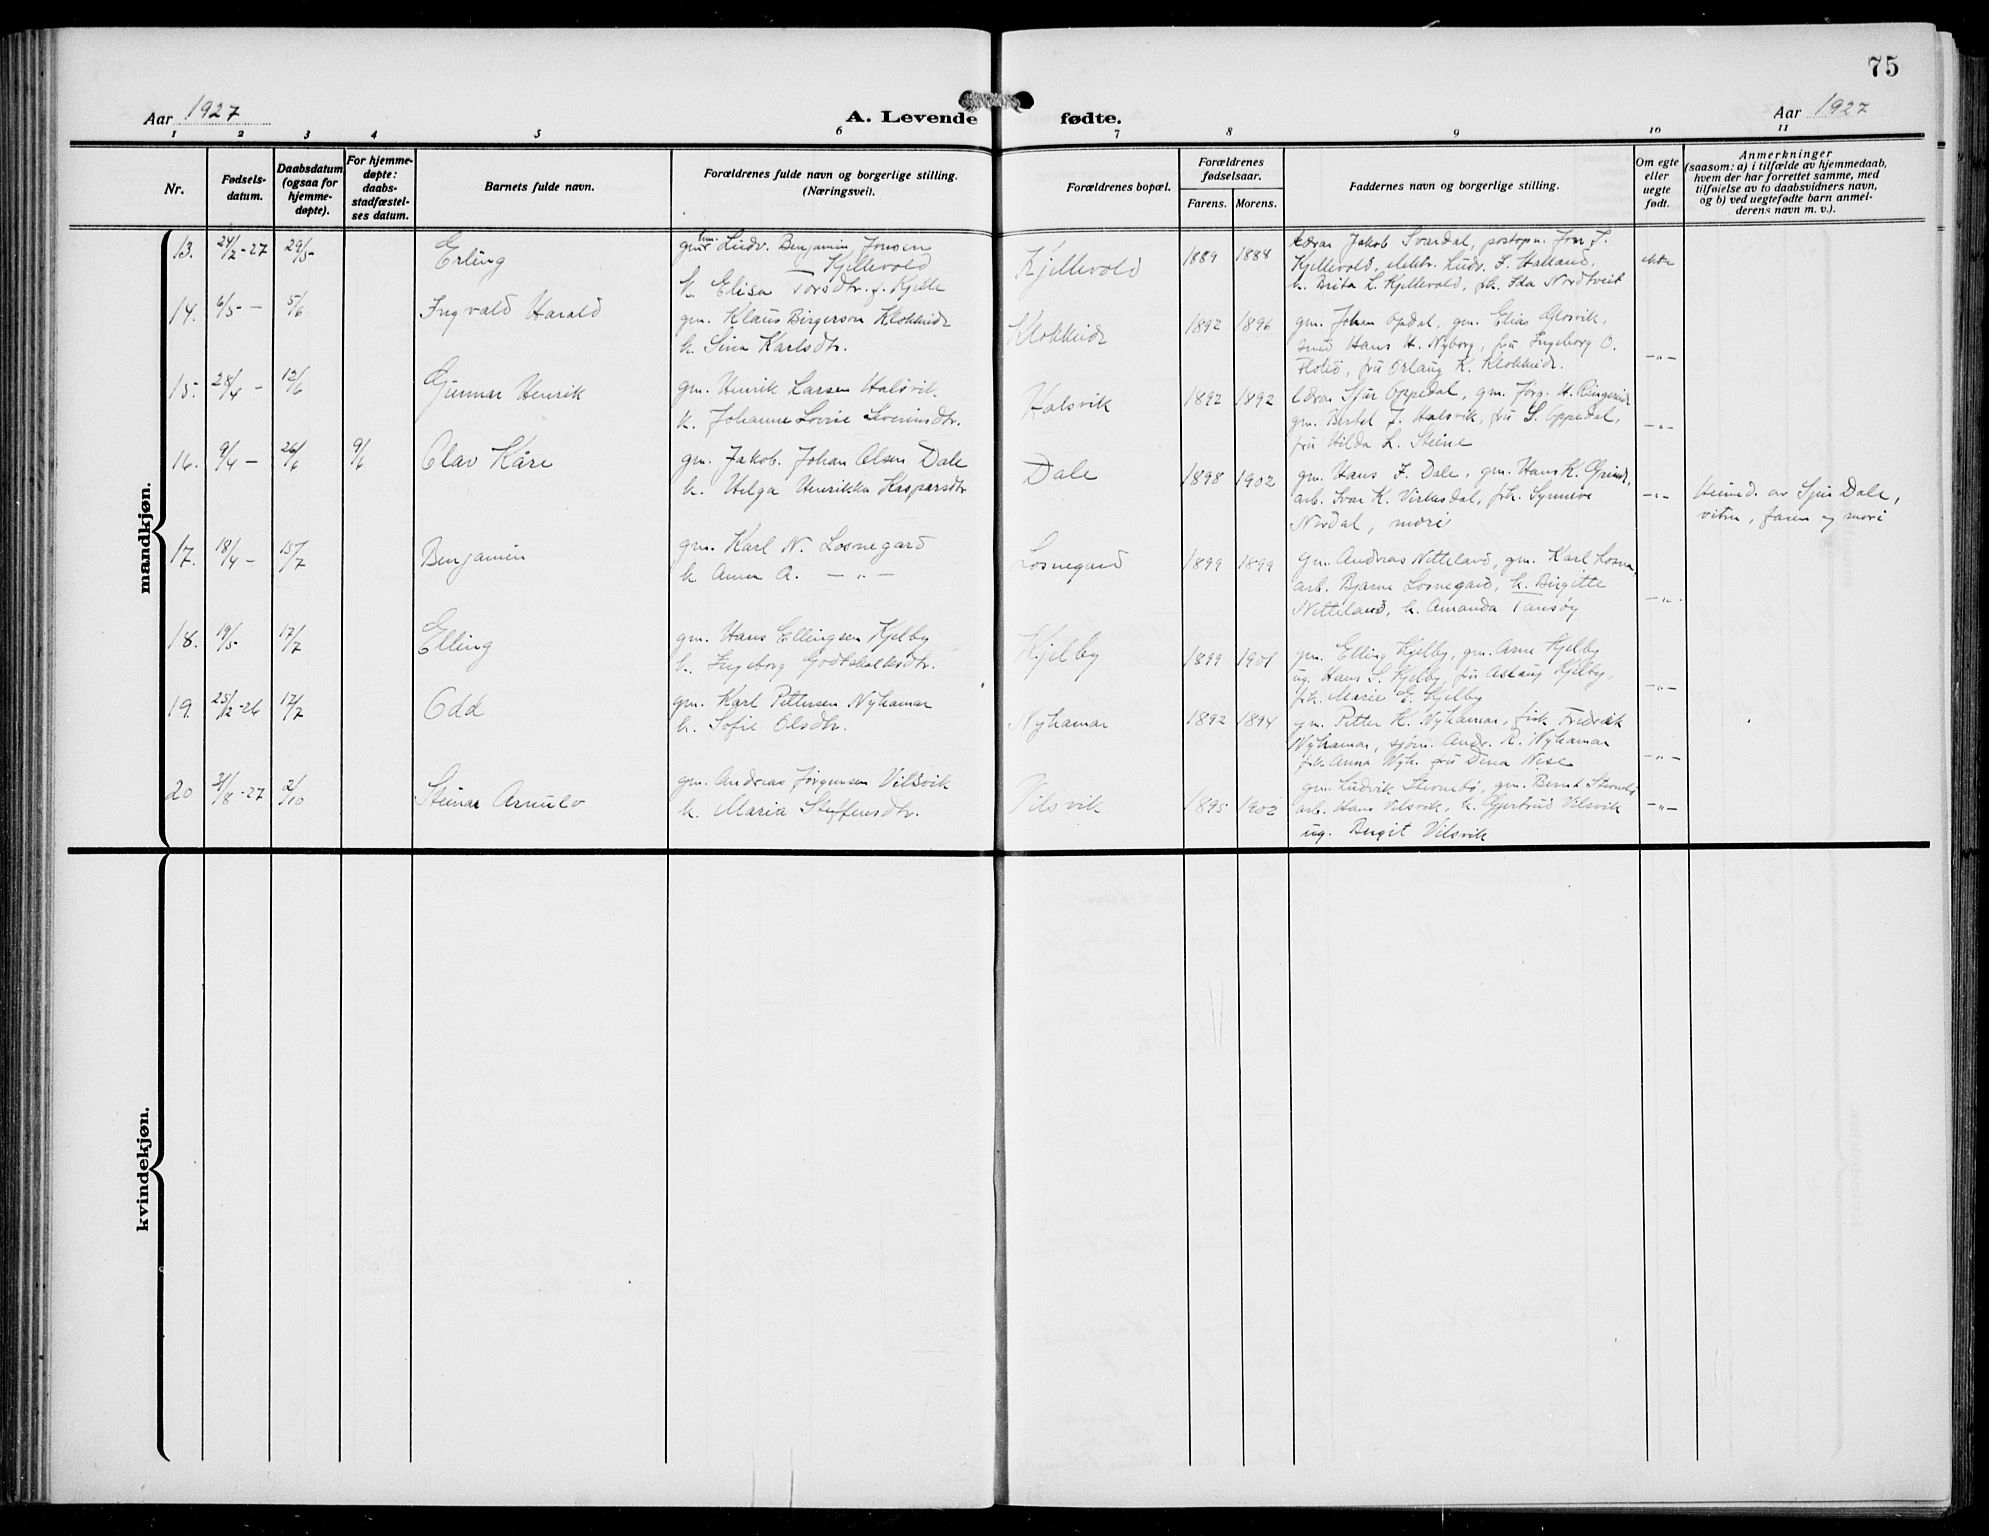 75
Aar 1927 A. Levende fødte. Aar 1927
1 2 3 4 5 6 7 8 9 10 11
Nr.
Fødsels-
datum.
Daabsdatum
(ogsaa for
hjemme-
døpte).
For hjemme-
døpte:
daabs-
stadfæstel-
ses datum.
Barnets fulde navn.
Forældrenes fulde navn og borgerlige stilling.
(Næringsvei).
Forældrenes bopæl.
Forældrenes
fødselsaar.
Farens. Morens.
Faddernes navn og borgerlige stilling.
Om egte
eller
uegte
født.
Anmerkninger
(saasom: a) i tilfælde av hjemmedaab,
hvem der har forrettet samme, med
tilføielse av to daabsvidners navn,
og b) ved uegtefødte barn anmel-
derens navn m. v.).
mandkjøn.
13. 24/2-27 29/5- Erling
Ludv. Benjamin Jonsen
— Kjellevold
k. Elisa Torsdtr. f. Kjelle
Kjellevold 1889 1888
lærar Jakob Svardal, postopn. Jon J.
Kjellevold, elektr. Ludv. J. Halland,
k. Brita L. Kjellevold, frk. Ida Nordtveit
ekte
14. 6/5 — 5/6 Ingvald Harald
gm. Klaus Birgerson Klokkeide
k. Sina Karlsdtr.
Klokkeide 1892 1896
gm. Johan Opdal, gm. Elias Glosvik,
smed Hans H. Nyborg, fru Ingeborg O.
Flolid, fru Erlaug K. Klokkeide.
—"—
15. 28/4 — 12/6 Gunnar Henrik
gm. Henrik Larsen Halsvik
k. Johanne Lovise Severinsdtr.
Halsvik 1892 1892
lærar Sjur Oppedal, gm. Jørg. H. Ringereide
gm. Bertel J. Halsvik, fru S. Oppedal,
fru Hilda L. Steine
—"—
16. 9/4 — 26/6 9/6 Olav Kåre
gm. Jakob Johan Olsen Dale
k. Helga Henrikka Kasparsdtr
Dale 1898 1902
gm. Hans J. Dale, gm. Hans K. Grinde,
arb. Ivar K. Virkesdal, frk. Synneve
Nordal, mori
—"—
Heimed. av Sjur Dale,
vitne, faren og mori
17. 18/4 — 15/7 Benjamin
gm. Karl N. Losnegard
k. Anna A. — " —
Losnegard 1899 1899
gm. Andreas Nitteland, gm. Karl Losna,
arb. Bjarne Losnegard, k. Birgitte
Nitteland, k. Amanda Tansøy
—"—
18. 19/5 17/7 Elling
gm. Hans Ellingsen Kjelby
k. Ingeborg Godtskalksdtr.
Kjelby 1899 1901
gm. Elling Kjelby, gm. Arne Kjelby
ug. Hans S. Kjelby, fru Aslaug Kjelby,
frk. Marie E. Kjelby
—"—
19. 25/2-26 17/7 Odd
gm. Karl Pettersen Nyhamar
k. Sofie Olsdtr.
Nyhamar 1892 1894
gm. Petter K. Nyhamar, fisk. Fredrik
Nyhamar, sjøm. Andr. R. Nyhamar
frk. Anna Nyh. fru Dena Nese
—"—
20 31/8-27 2/10 Steinar Arnulv
gm. Andreas Jørgensen Vilsvik
k. Maria Steffensdtr.
Vilsvik 1895 1902
gm. Ludvik Stornebø, gm. Bernt Stornebø
arb. Hans Vilsvik, k. Gjertrud Vilsvik
ug. Bergit Vilsvik
—"—
kvindekjøn.